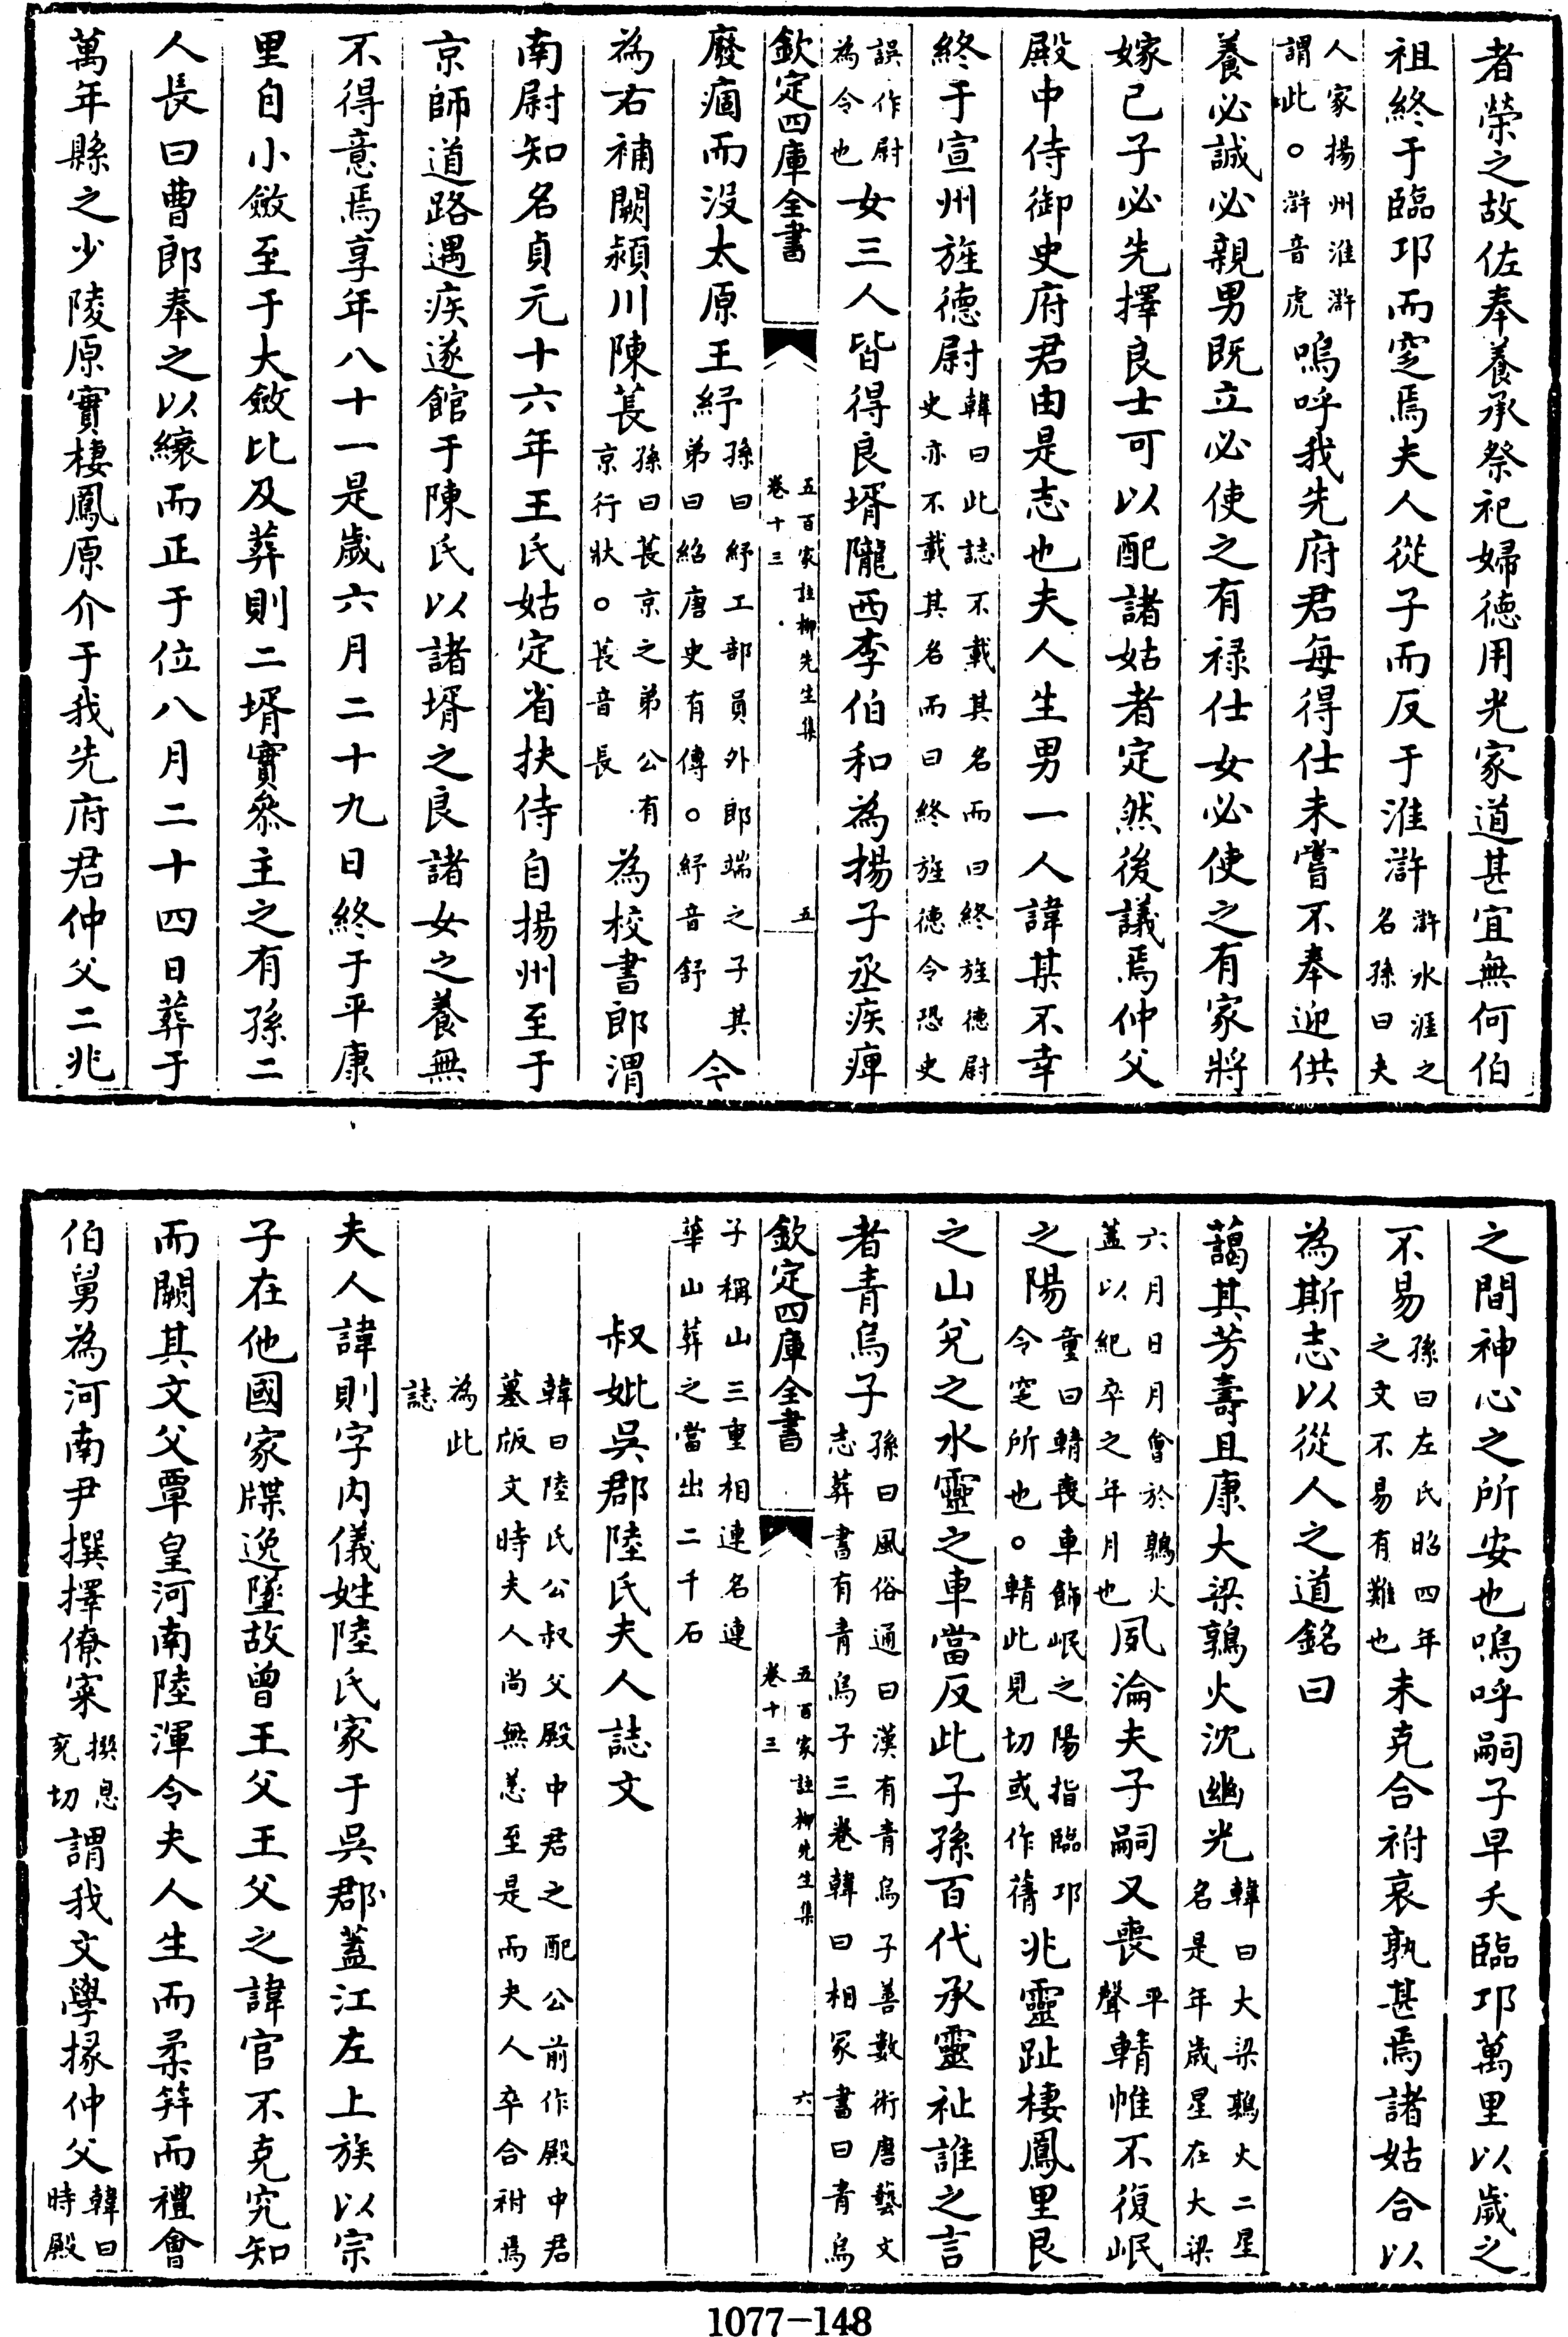 者榮之故佐奉養承祭祀婦德用光家道甚宜無何伯
祖終于臨邛而窆焉夫人從子而反于淮滸滸水涯之名孫曰夫
人家揚州淮滸謂此○滸音虎嗚呼我先府君每得仕未嘗不奉迎供
養必誠必親男既立必使之有禄仕女必使之有家將
嫁己子必先擇良士可以配諸姑者定然後議焉仲父
殿中侍御史府君由是志也夫人生男一人諱某不幸
終于宣州旌德尉韓曰此誌不載其名而曰終旌德尉史亦不載其名而曰終旌德令恐史
誤作尉為令也女三人皆得良壻隴西李伯和為揚子丞疾痺
欽定四庫全書 五百家註柳先生集 卷十三 五
廢痼而沒太原王紓孫曰紓工部員外郎端之子其弟曰紹唐史有傳○紓音舒今
為右補闕潁川陳萇孫曰萇京之弟公有京行狀○萇音長為校書郎渭
南尉知名貞元十六年王氏姑定省扶侍自揚州至于
京師道路遇疾遂館于陳氏以諸壻之良諸女之養無
不得意焉享年八十一是歲六月二十九日終于平康
里自小斂至于大斂比及葬則二壻實叅主之有孫二
人長曰曹郎奉之以縗而正于位八月二十四日葬于
萬年縣之少陵原實棲鳳原介于我先府君仲父二兆
之間神心之所安也嗚呼嗣子早夭臨邛萬里以歲之
不易孫曰左氏昭四年之文不易有難也未克合祔哀孰甚焉諸姑合以
為斯志以從人之道銘曰
藹其芳壽且康大梁鶉火沈幽光韓曰大梁鶉火二星名是年歲星在大梁
六月日月會於鶉火蓋以紀卒之年月也夙淪夫子嗣又喪平聲輤帷不復岷
之陽童曰輤喪車飾岷之陽指臨邛令窆所也○輤此見切或作蒨兆靈趾棲鳳里艮
之山兌之水靈之車當反此子孫百代承靈祉誰之言
者青烏子孫曰風俗通曰漢有青烏子善數術唐藝文志葬書有青烏子三卷韓曰相冢書曰青烏
欽定四庫全書 五百家註柳先生集 卷十三 六
子稱山三重相連名連華山葬之當出二千石
叔妣吳郡陸氏夫人誌文
韓曰陸氏公叔父殿中君之配公前作殿中君墓版文時夫人尚無恙至是而夫人卒合祔焉
為此誌
夫人諱則字內儀姓陸氏家于吳郡蓋江左上族以宗
子在他國家牒逸墜故曾王父王父之諱官不克究知
而闕其文父覃皇河南陸渾令夫人生而柔笄而禮會
伯舅為河南尹撰擇僚寀撰息兖切謂我文學掾仲父韓曰時殿
1077-148